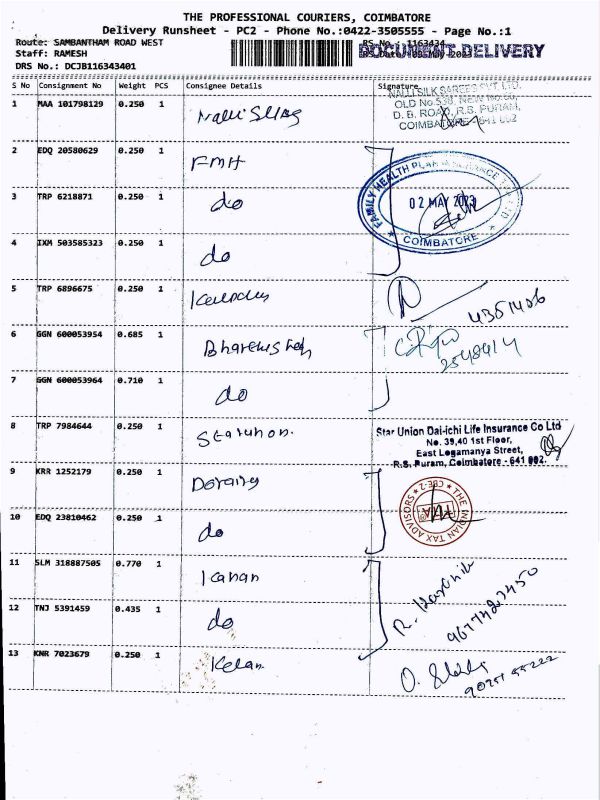 THE PROFESSIONAL COURIERS, COIMBATORE
Delivery Runsheet - PC2 - Phone No.:0422-3505555 - Page No.:1
Route: SAMBANTHAM ROAD WEST
RS No.: 1163434
DOCUMENT DELIVERY
Staff: RAMESH
DRS No.: DCJB116343401
S No Consignment No Weight PCS Consignee Details Signature
1 MAA 101798129 0.250 1
NALLI SILK SAREES PVT. LTD.
OLD No.538, NEW No.
D. B. ROAD, R.S. PURAM,
COIMBATORE - 641 002
2 EDQ 20580629 0.250 1 FMH
FAMILY HEALTH PLAN INSURANCE TPA LTD
02 MAY 2023
COIMBATORE
3 TRP 6218871 0.250 1 do
4 IXM 503585323 0.250 1 do
5 TRP 6896675 0.250 1
4351406
6 GGN 600053954 0.685 1
2548414
7 GGN 600053964 0.710 1 do
8 TRP 7984644 0.250 1
Star Union Dai-ichi Life Insurance Co Ltd
No. 39,40 1st Floor,
East Logamanya Street,
R.S. Puram, Coimbatore - 641 002.
9 KRR 1252179 0.250 1
THE INDIAN TAX ADVISORS
CBE-2
10 EDQ 23810462 0.250 1 do
11 SLM 318887505 0.770 1 Kanan
12 TNJ 5391459 0.435 1 do
13 KNR 7023679 0.250 1 Kelan